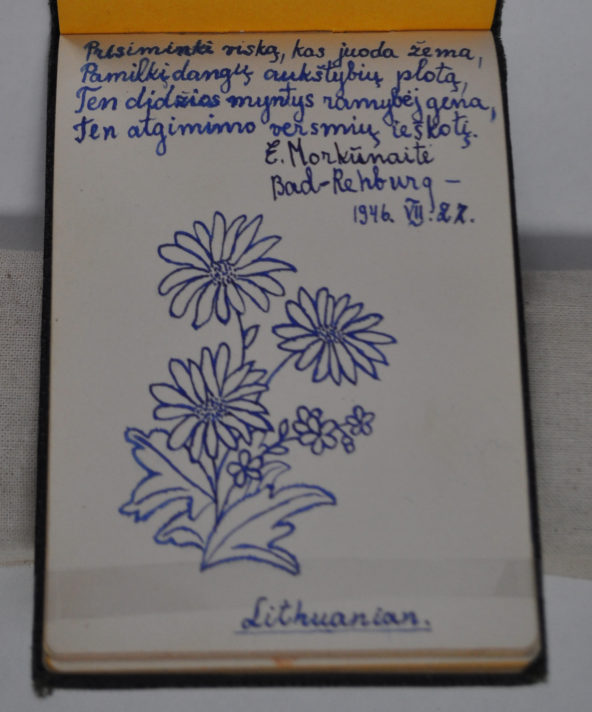 Prisiminki viską, kas juoda žema,
Pamilki dangių aukštybių plotą,
Ten didžios myntys ramybėj gena,
Ten atgimimo versmių ieškoti.
E. Morkūnaitė
Bad-Rehburg –
1946. VII. 27.
Lithuanian.